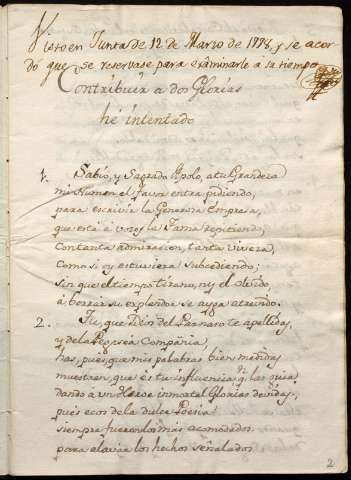 Visto en Junta de 12 de Marzo de 1778, y se acor
dó que se reservase para examinarle a su tiempo
Contribuir a dos Glorias
he intentado
1. Sabio, y Sagrado Apolo, a tu Grandeza
mi Numen el favor entra pidiendo,
para escrivir la Generosa Empresa,
que está a vozes la Fama repitiendo,
con tanta admiracion, tanta viveza,
como si oy estuviera subcediendo;
sin que el tiempo tirano, ni el olvido,
à borrar su explendor se ayga atrevido.
2. Tu, que Dios del Parnaso te apellidas,
y de la Pegasea Compañia,
haz, pues, que mis palabras bien medidas
muestren, que es tu influencia qn. las guia
dando a un Heroe inmortal Glorias devidas,
pues ecos de la dulce Poesia
siempre fueron los mas acomodados
para elaviar los hechos señalados
2